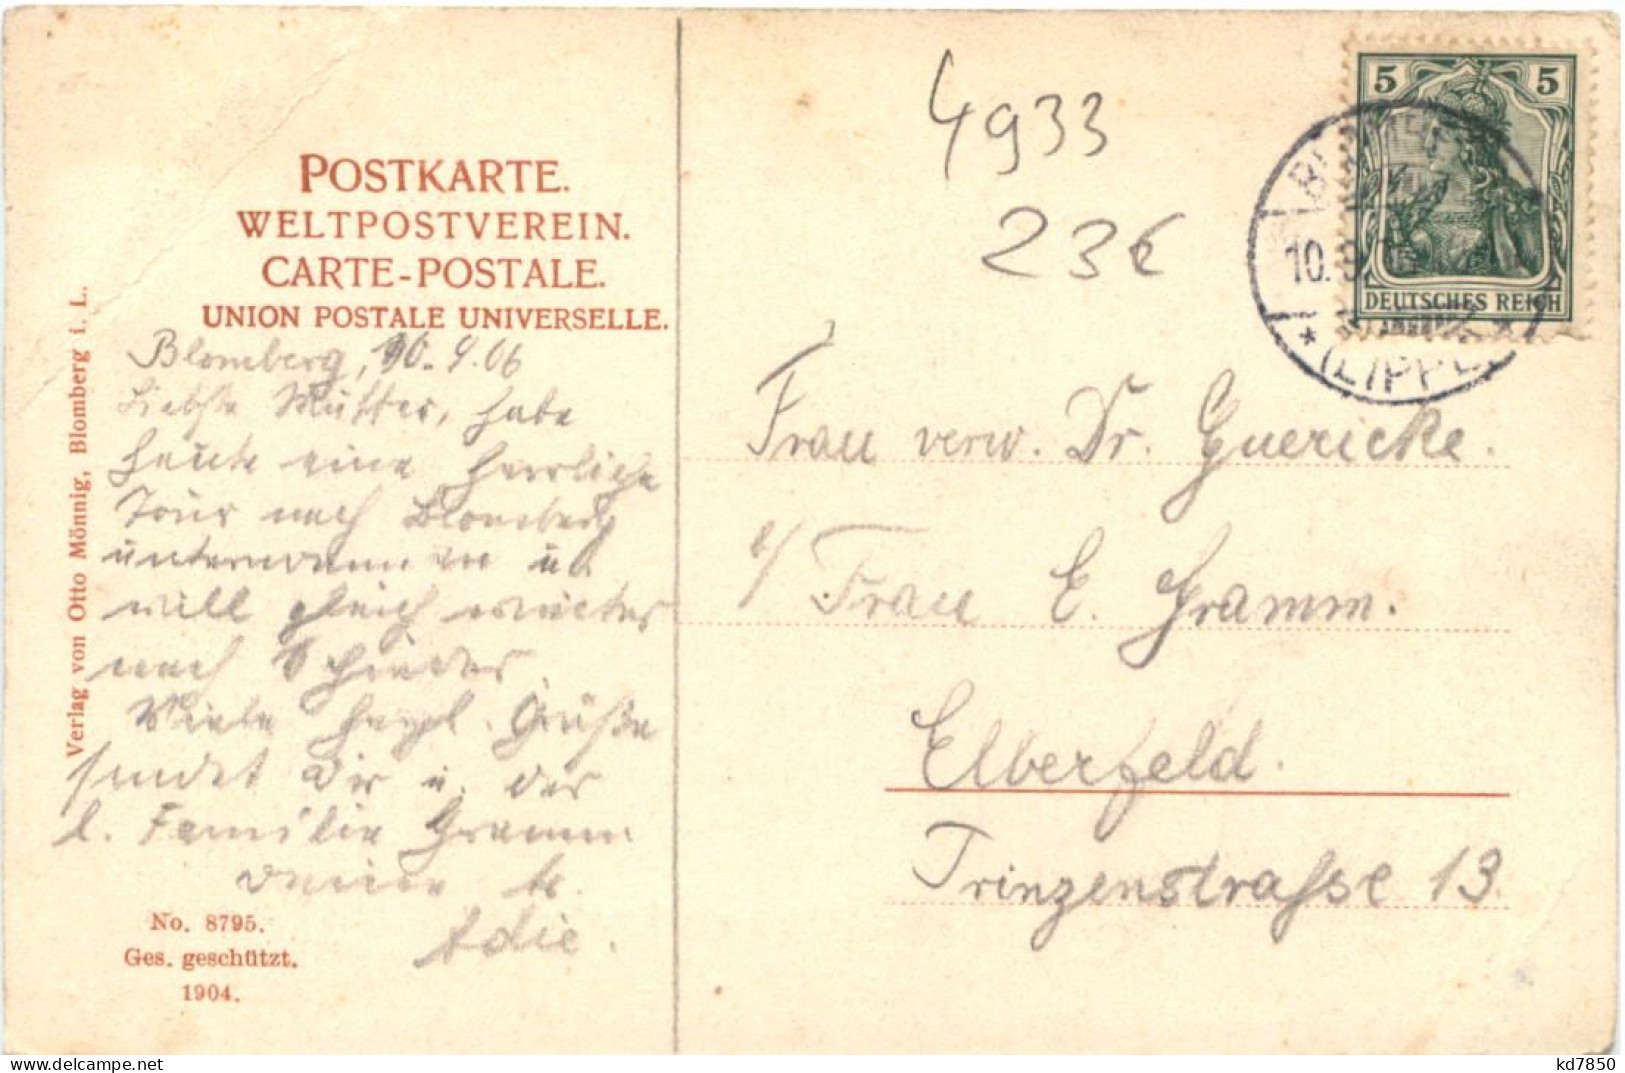 POSTKARTE.
WELTPOSTVEREIN.
CARTE-POSTALE.
UNION POSTALE UNIVERSELLE.
Blomberg, 10. 9. 06
Liebste Mutter, habe
heute eine herrliche
Tour nach Blomberg
unternommen u.
will gleich weiter
nach Schieder.
Viele herzl. Grüße
sendet Dir u. der
l. Familie Gramm
Deine tr.
Adie.
No. 8795.
Ges. geschützt.
1904.
Verlag von Otto Mönnig, Blomberg i. L.
4933
23€
5 5
DEUTSCHES REICH
10.9.
* (LIPPE)
Frau verw. Dr. Guericke.
b/ Frau E. Gramm.
Elberfeld.
Prinzenstrasse 13.
kd7850